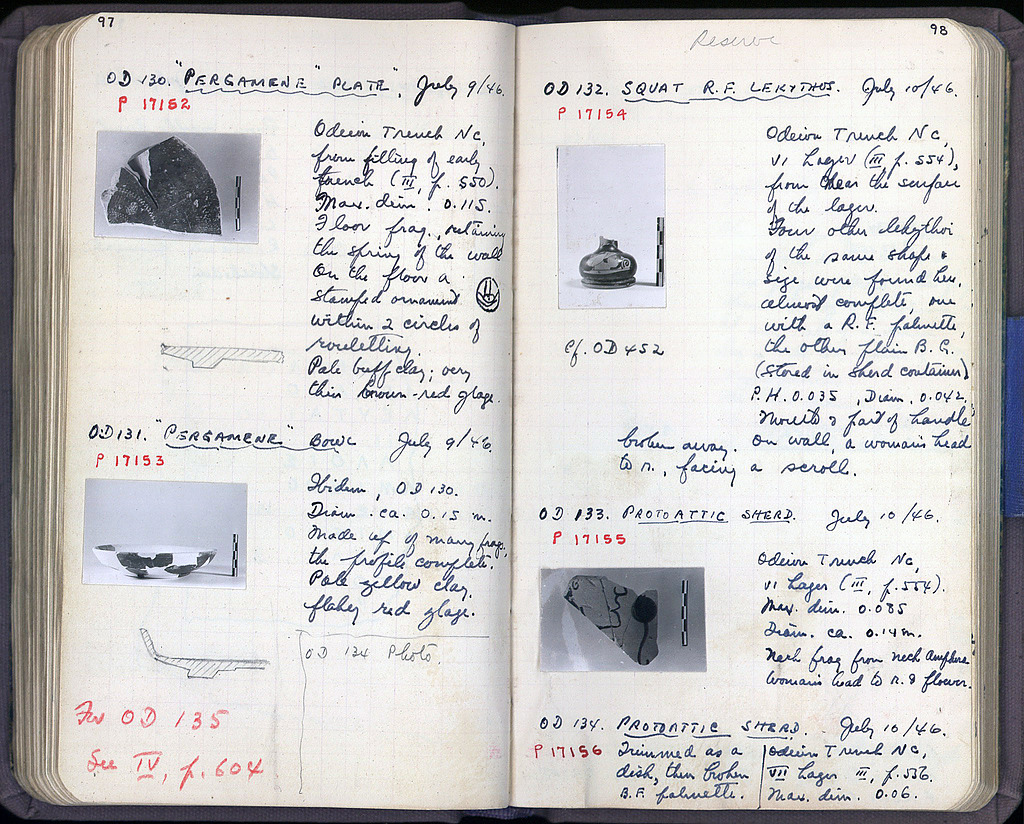 97
OD 130. "PERGAMENE" PLATE", July 9/46.
P 17152
Odeion Trench NC,
from filling of early
trench (III, p. 550).
Max. dim. 0.115.
Floor frag., retaining
the spring of the wall
On the floor a
stamped ornament
within 2 circles of
rouletting.
Pale buff clay; very
thin brown-red glaze.
OD 131. "PERGAMENE" BOWL July 9/46.
P 17153
Ibidem, OD 130.
Diam. ca. 0.15 m.
Made up of many frags,
the profile complete.
Pale yellow clay,
flakey red glaze.
OD 134 Photo.
For OD 135
See IV, p. 604
98
Reserve
OD 132. SQUAT R.F. LEKYTHOS. July 10/46.
P 17154
Odeion Trench NC,
VI Lager (III p. 554),
from near the surface
of the lager.
Four other lekythoi
of the same shape &
size were found here,
almost complete, one
with a R.F. palmette,
the other plain B.G.
(Stored in sherd container)
P.H. 0.035, Diam. 0.042.
Mouth & part of handle
broken away. On wall, a woman's head
to r., facing a scroll.
Cf. OD 452
OD 133. PROTOATTIC SHERD. July 10/46.
P 17155
Odeion Trench NC,
VI Lager (III, p. 554).
Max. dim. 0.085
Diam. ca. 0.14 m.
Neck frag from neck amphora
Woman's head to r. & flower.
OD 134. PROTOATTIC SHERD. July 10/46.
P 17156
Trimmed as a
disk, then broken
B.F. palmette.
Odeion Trench NC,
VII Lager III, p. 556.
Max. dim. 0.06.